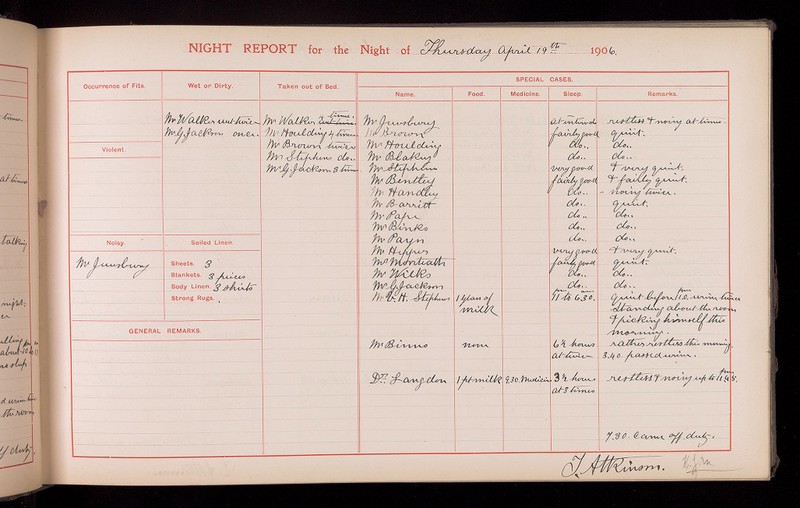 NIGHT REPORT for the Night of Thursday April 19th 1906.
Occurrence of Fits.
Wet or Dirty.
Taken out of Bed.
SPECIAL CASES.
Name.
Food.
Medicine.
Sleep.
Remarks.
Mr Walker wet twice
Mr G Jackson once.
Mr Walker
Mr Houlding 4 times
Mr Brown twice
Mr Stephens do..
Mr G Jackson 3 times
Violent.
Noisy.
Soiled Linen.
Sheets. 3
Blankets. 3 pieces
Body Linen. 3 shirts
Strong Rugs.
GENERAL REMARKS.
restless & noisy at times
Mr Brown fairly good quiet.
Mr Houlding do.. do..
Mr Blakey do.. do..
Mr Stephens very good & very quiet.
Mr Bentley fairly good & fairly quiet.
Mr Handley do.. noisy twice.
Mr Barritt do.. quiet.
Mr Pape do.. do..
Mr Binks do.. do..
Mr Payn do.. do..
very good & very quiet.
Mr Monteath fairly good quiet.
Mr Wicks do.. do..
Mr G Jackson do.. do..
H. Stephens 1 glass of milk 11 to 6.30. quiet before 11
standing about the room
& picking himself this
morning.
Mr Binns none 6½ hours rather restless this morning.
at twice 3.40. passed urine.
Dr Langdon 1 pt milk 9.30. Medicine 3½ hours restless & noisy up to 11.45.
at 3 times
7.30. Came off duty.
T. Atkinson.